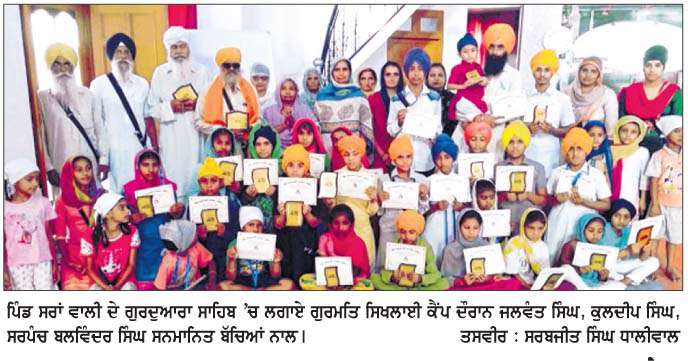 ਪਿੰਡ ਸਰਾਂ ਵਾਲੀ ਦੇ ਗੁਰਦੁਆਰਾ ਸਾਹਿਬ ’ਚ ਲਗਾਏ ਗੁਰਮਤਿ ਸਿਖਲਾਈ ਕੈਂਪ ਦੌਰਾਨ ਜਲਵੰਤ ਸਿੰਘ, ਕੁਲਦੀਪ ਸਿੰਘ,
ਸਰਪੰਚ ਬਲਵਿੰਦਰ ਸਿੰਘ ਸਨਮਾਨਿਤ ਬੱਚਿਆਂ ਨਾਲ। ਤਸਵੀਰ : ਸਰਬਜੀਤ ਸਿੰਘ ਧਾਲੀਵਾਲ